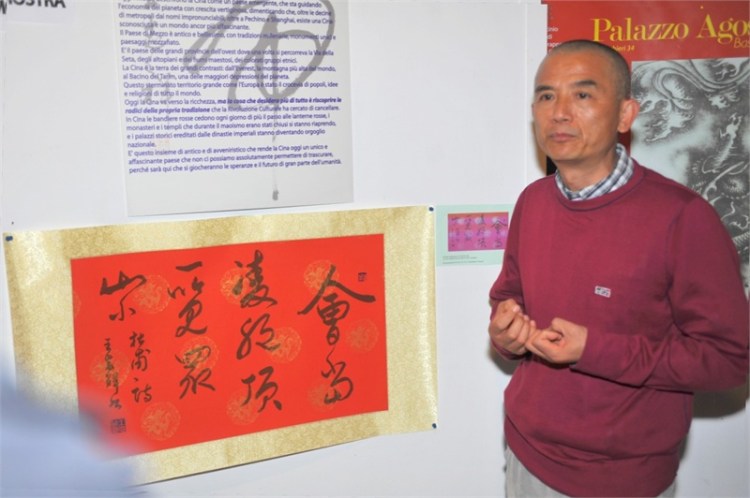 MOSTRA
come un paese emergente, che sta guidando
l'economia del pianeta con crescita vertiginosa, dimenticando che, oltre le decine
di metropoli dai nomi impronunciabili, oltre a Pechino e Shanghai, esiste una Cina
sconosciuta e un mondo ancora
Il Paese di Mezzo è antico e fantastico, con tradizioni millenarie, monumenti unici e
paesaggi mozzafiato.
E' il paese delle grandi dell'ovest dove una volta si percorreva la Via della
Seta, degli altopiani maestosi, gruppi etnici.
La Cina è la terra dei grandi contrasti: dall'Everest, la montagna più alta del mondo,
al Bacino del Tarim, una delle maggiori depressioni del pianeta.
Questo territorio grande come l'Europa è stato il crocevia di popoli, idee
e religioni di tutto il mondo.
Oggi la Cina va verso la ricchezza, ma la cosa che desidera più di tutto è riscoprire le
radici della propria tradizione che la Rivoluzione Culturale ha cercato di cancellare.
In Cina le bandiere rosse cedono ogni giorno di più il passo alle lanterne rosse, i
monasteri e i templi che durante il maoismo erano stati chiusi si stanno riaprendo,
e i palazzi storici ereditati dalle dinastie imperiali stanno diventando orgoglio
nazionale.
E' questo insieme di antico e di avveniristico che rende la Cina oggi un unico e
affascinante paese che non ci possiamo assolutamente permettere di trascurare,
perché sarà qui che si giocheranno le speranze e il futuro di gran parte dell'umanità.
Palazzo Agos
Bas
會當
凌絕頂
一覽眾
山小
杜甫詩